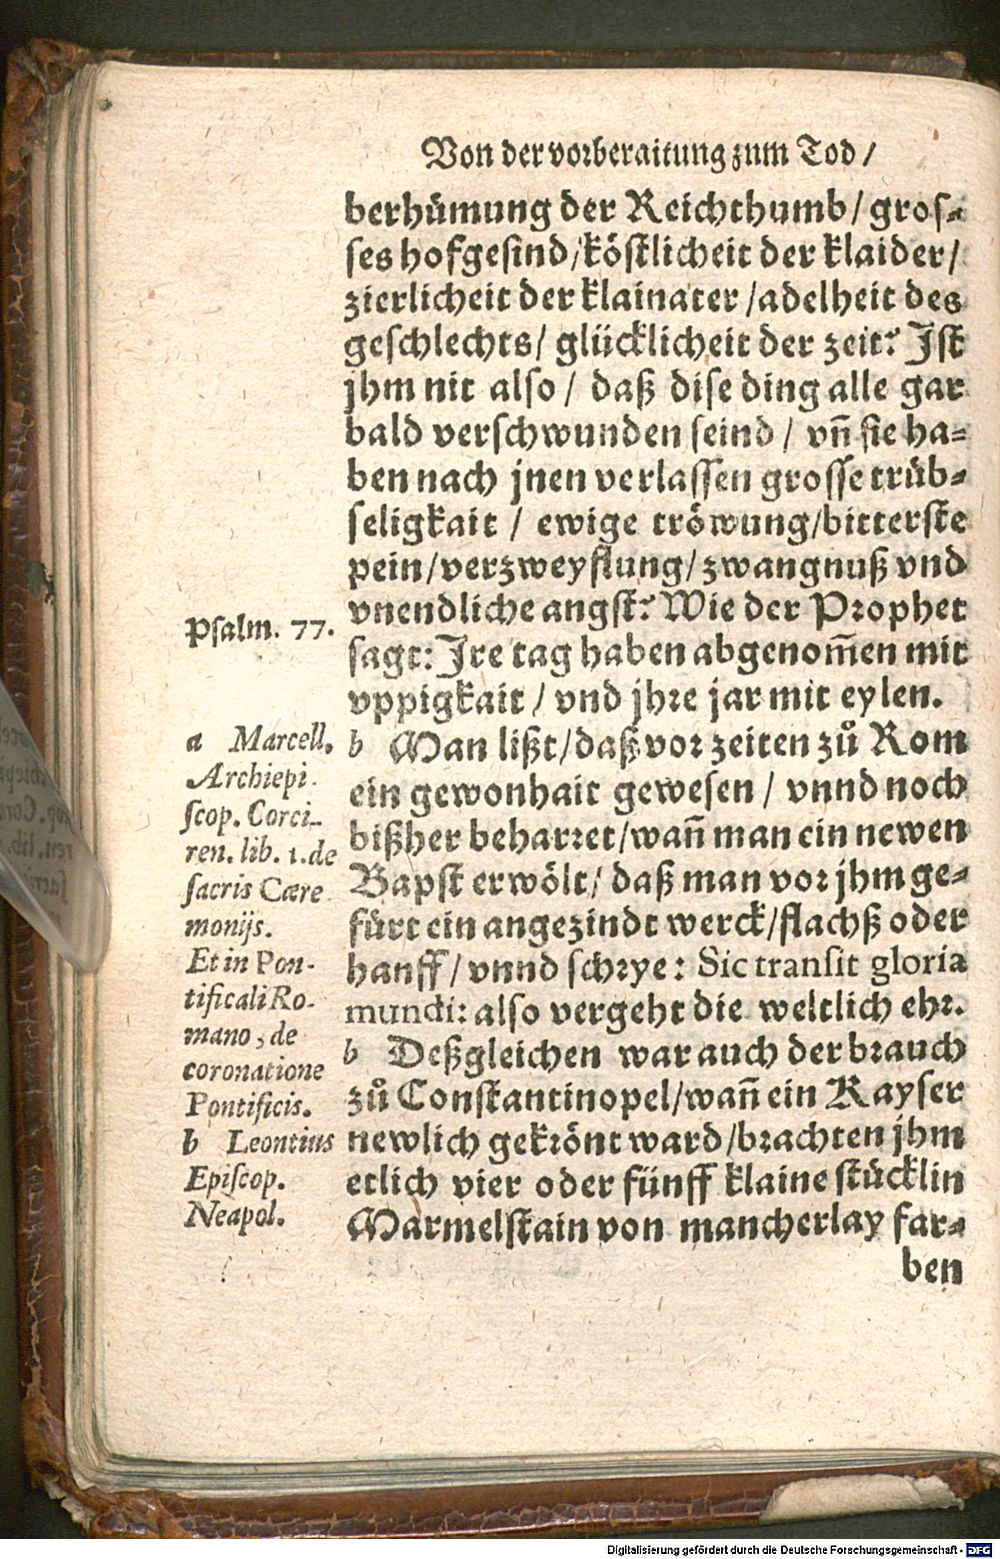 Von der vorberaitung zum Tod /
berhümung der Reichthumb / gros-
ses hofgesind / köstlicheit der klaider /
zierlicheit der klainater / adelheit des
geschlechts / glücklicheit der zeit? Ist
jhm nit also / daß dise ding alle gar
bald verschwunden seind / vñ sie ha-
ben nach jnen verlassen grosse trüb-
seligkait / ewige tröwung / bitterste
pein / verzweyflung / zwangnuß vnd
vnendliche angst? Wie der Prophet
sagt: Ire tag haben abgenom̃en mit
vppigkait / vnd jhre jar mit eylen.
b Man lißt / daß vor zeiten zů Rom
ein gewonhait gewesen / vnnd noch
bißher beharret / wañ man ein newen
Bapst erwölt / daß man vor jhm ge-
fürt ein angezindt werck / flachß oder
hanff / vnnd schrye: Sic transit gloria
mundi: also vergeht die weltlich ehr.
b Deßgleichen war auch der brauch
zů Constantinopel / wañ ein Kayser
newlich gekrönt ward / brachten jhm
etlich vier oder fünff klaine stücklin
Marmelstain von mancherlay far-
ben
Psalm. 77.
a Marcell.
Archiepi-
scop. Corci-
ren. lib. 1. de
sacris Cære
monijs.
Et in Pon-
tificali Ro-
mano, de
coronatione
Pontificis.
b Leontius
Episcop.
Neapol.
Digitalisierung gefördert durch die Deutsche Forschungsgemeinschaft - DFG